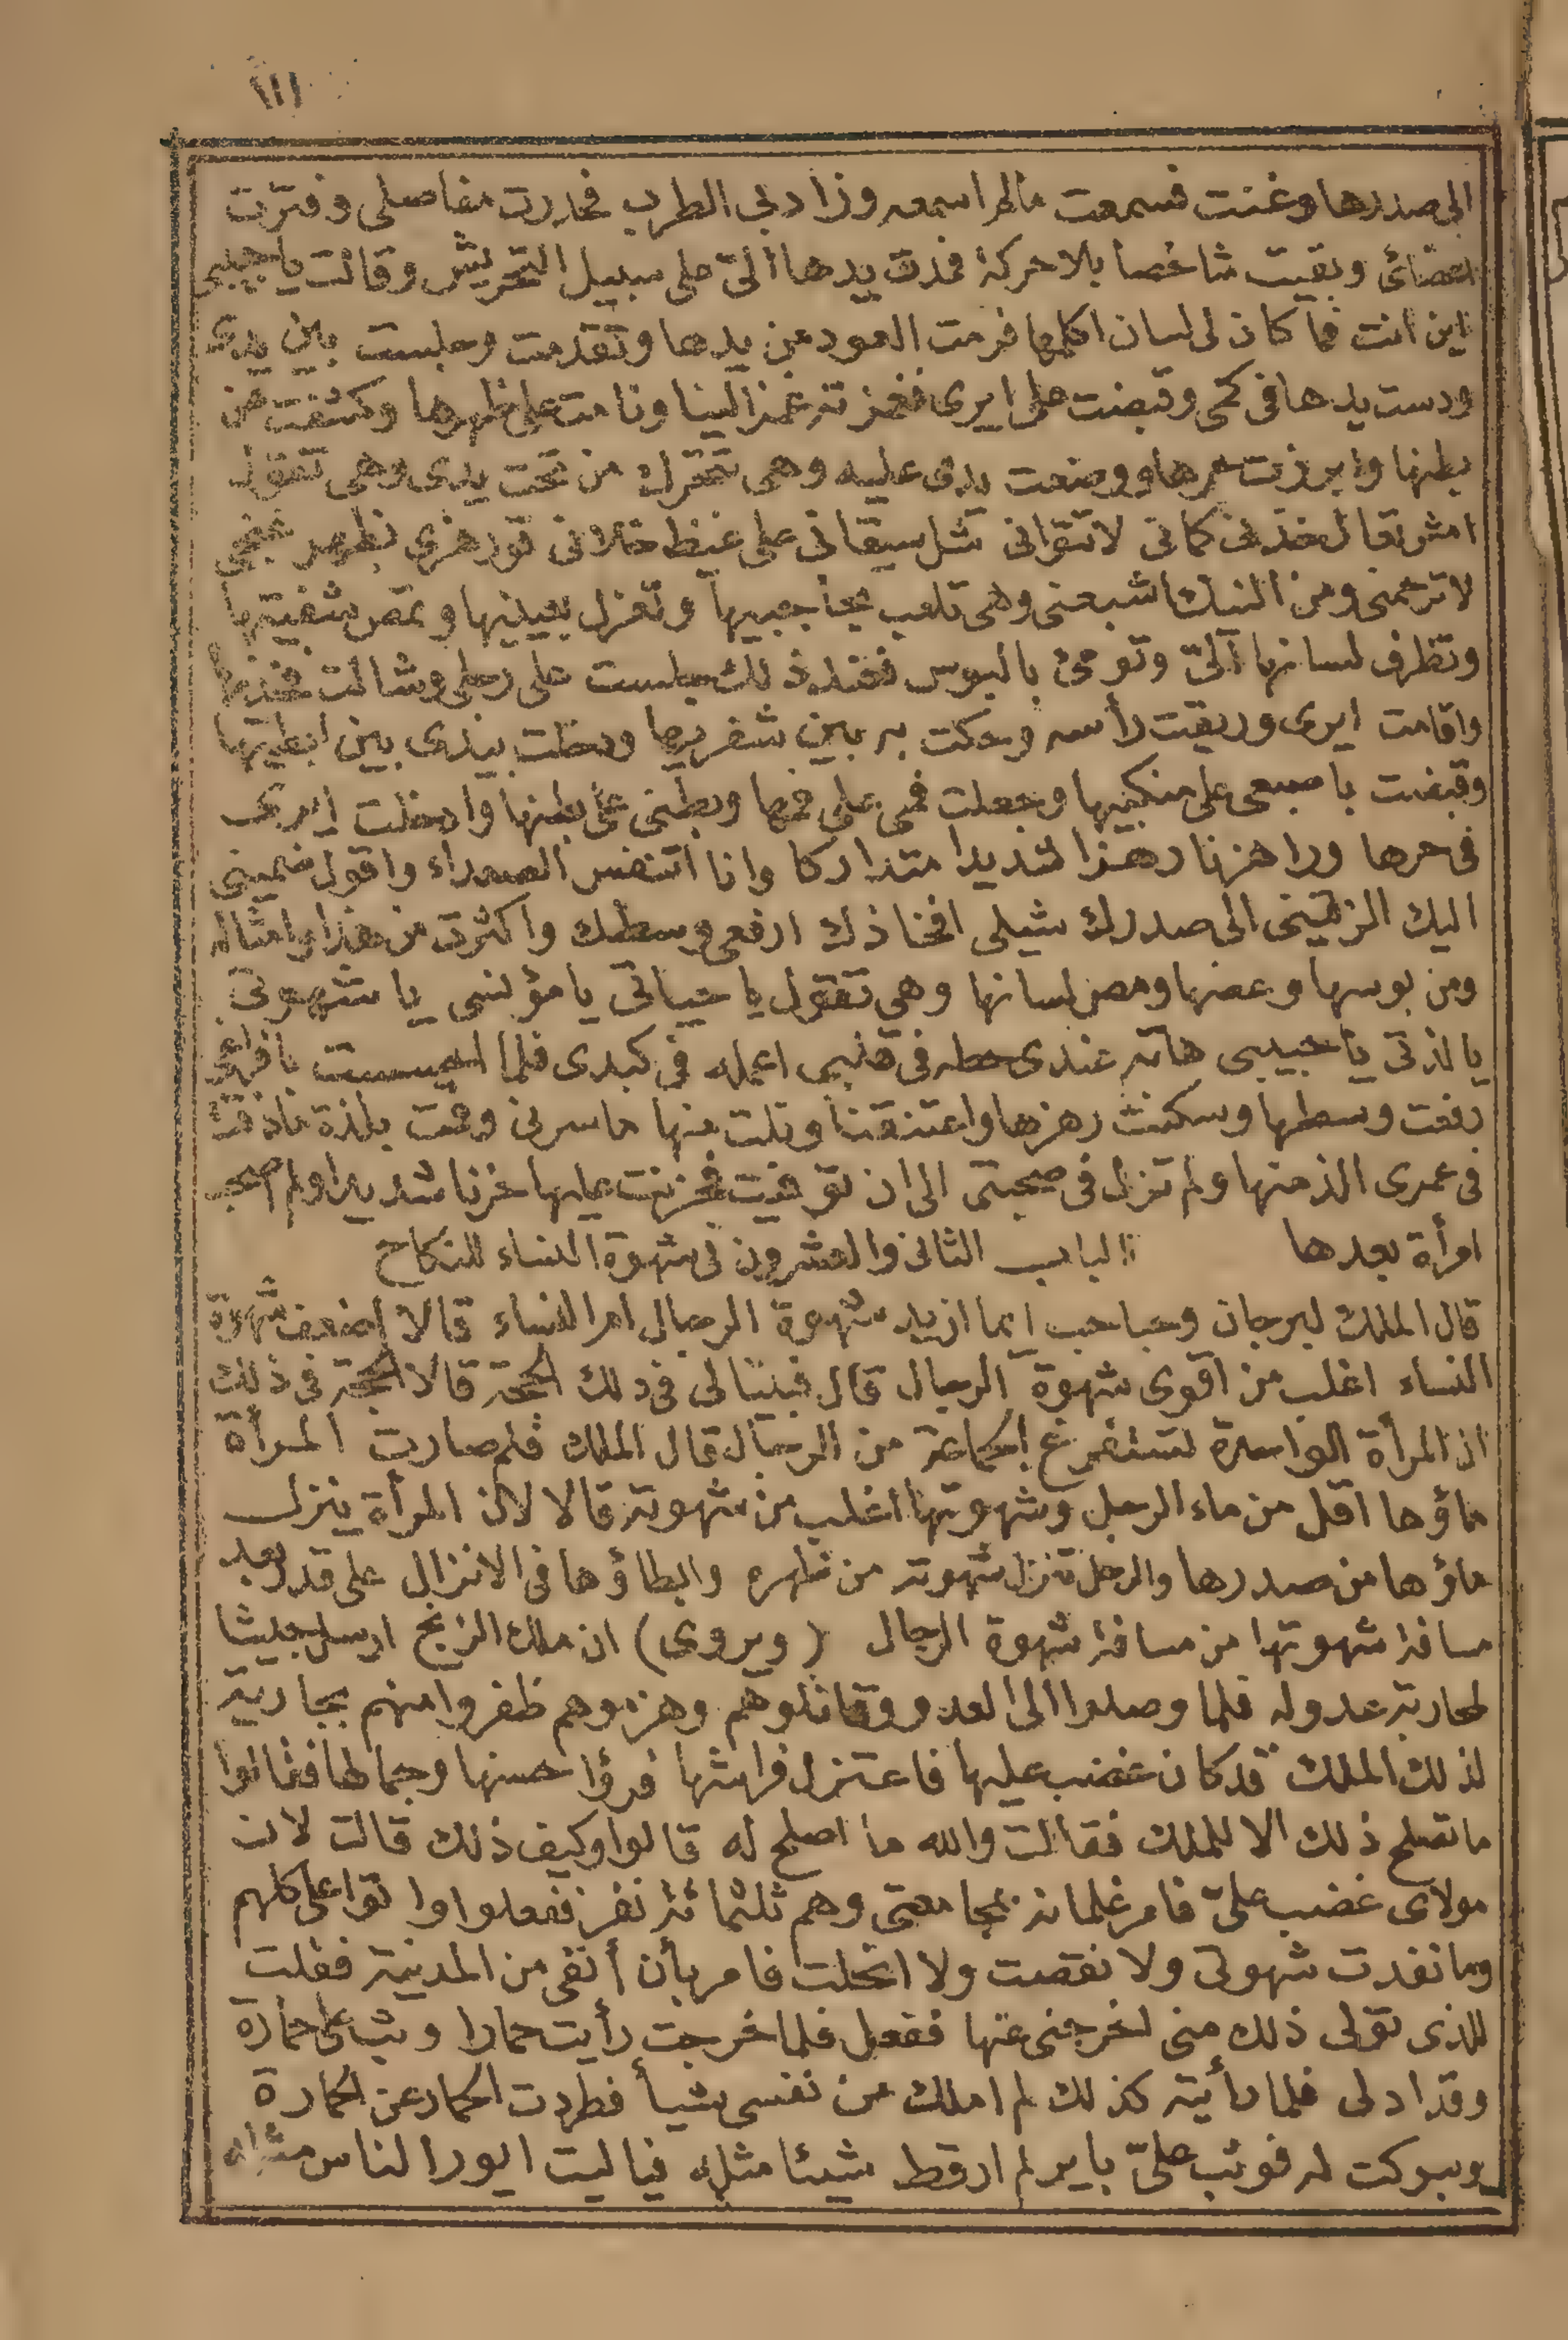 ١١١
الى صدرها وغنت فسمعت مالم اسمعه وزاد بى الطرب فخدرت مفاصلى وفترت
اعضائى وبقيت شاخصا بلا حركة فمدت يدها الىّ على سبيل التحريش وقالت يا حبيبى
اين انت فما كان لى لسان اكلمها فرمت العود من يدها وتقدمت وجلست بين يدى
ودست يدها فى كمى وقبضت على ايرى فغمزته غمزا لينا ونامت على ظهرها وكشفت عن
بطنها وابرزت حرها ووضعت يدى عليه وهى تتحرك من تحت يدى وهى تقول
امش تعال خذنى كمانى لا تتوانى شل سيقانى على غيظ خلانى
لا ترحمنى ومن النيك اشبعنى وهى تلعب بحاجبيها وتغزل بعينيها وتمص شفيتها
وتظرف لسانها الىّ وتومى بالبوس فعند ذلك جلست على رجلى وشالت فخذيها
واقامت ايرى وريقت رأسه وحكت به بين شفريها ودخلت بيدى بين ابطيها
وقبضت باصبعى على منكبيها وجعلت فمى على فمها وبطنى على بطنها وادخلت ايرى
فى حرها وراهزنا رهزا شديدا متداركا وانا اتنفس الصعداء واقول ضمينى
اليك الزقينى الى صدرك شيلى افخاذك ارفعى وسطك واكثرت من هذا وامثاله
ومن بوسها وعضها ومص لسانها وهى تقول يا حياتى يا مؤنسى يا شهوتى
يا لذتى يا حبيبى هاته عندى حطه فى قلبى اعمله فى كبدى فلما احسست بافراغى
رفعت وسطها وسكنت رهزها واعتنقنا ونلت منها ما سرنى وقمت بلذة ماذقت
فى عمرى الذ منها ولم تزل فى صحبتى الى ان توفيت فحزنت عليها حزنا شديدا ولم اصحب
امرأة بعدها الباب الثانى والعشرون فى شهوة النساء للنكاح
قال الملك لبرجان وحباحب ايما ازيد شهوة الرجال امر النساء قالا اضعف شهوة
النساء اغلب من اقوى شهوة الرجال قال فبينا لى فى ذلك الحجة قالا الحجة فى ذلك
ان المرأة الواحدة تستفرغ الجماعة من الرجال قال الملك فلم صارت المرأة
ماؤها اقل من ماء الرجل وشهوتها اغلب من شهوته قالا لان المرأة ينزل
ماؤها من صدرها والرجل تنزل شهوته من ظهره وابطاؤها فى الانزال على قدر بعد
مسافة شهوتها من مسافة شهوة الرجال (ويروى) ان ملك الزنج ارسل جيشا
لمحاربة عدو له فلما وصلوا الى العدو وقاتلوهم وهزموهم ظفروا منهم بجارية
لذلك الملك قد كان غضب عليها فاعتزل فراشها فرؤا حسنها وجمالها فقالوا
ما تصلح ذلك الا للملك فقالت والله ما اصلح له قالوا وكيف ذلك قالت لان
مولاى غضب علىّ فامر غلمانه بمجامعتى وهم ثلثمائة نفر ففعلوا واتوا على كلهم
وما نفدت شهوتى ولا نقصت ولا انحلت فامر بأن أنفى من المدينة فقلت
للذى تولى ذلك منى اخرجنى عنها ففعل فلما خرجت رأيت حمارا وثب على حمارة
وقد ادلى فلما رأيته كذلك لم املك من نفسى شيأ فطردت الحمار عن الحمارة
وبركت له فوثب علىّ باير لم ار قط شيئا مثله فياليت ايور الناس مثله